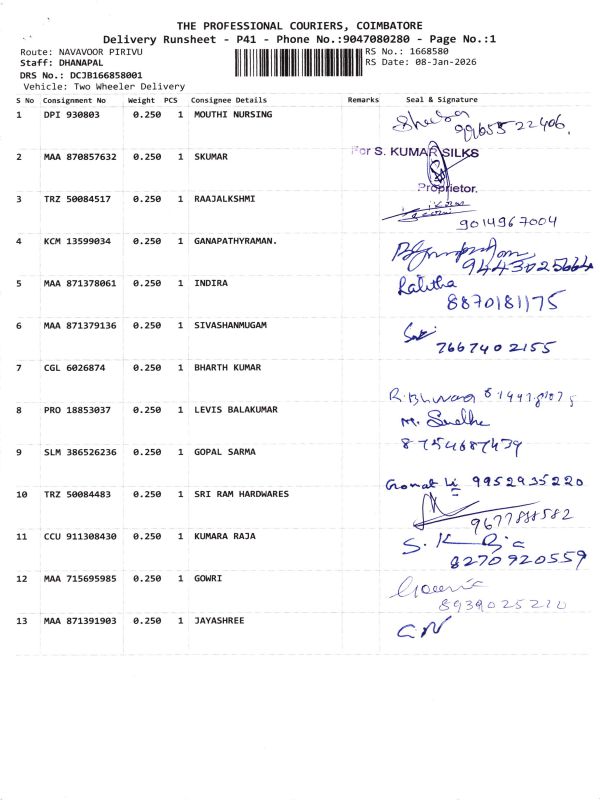 THE PROFESSIONAL COURIERS, COIMBATORE
Delivery Runsheet - P41 - Phone No.:9047080280 - Page No.:1
Route: NAVAVOOR PIRIVU RS No.: 1668580
Staff: DHANAPAL RS Date: 08-Jan-2026
DRS No.: DCJB166858001
Vehicle: Two Wheeler Delivery
S No Consignment No Weight PCS Consignee Details Remarks Seal & Signature
1 DPI 930803 0.250 1 MOUTHI NURSING
9965522406.
2 MAA 870857632 0.250 1 SKUMAR For S. KUMAR SILKS
Proprietor.
3 TRZ 50084517 0.250 1 RAAJALKSHMI
9014967004
4 KCM 13599034 0.250 1 GANAPATHYRAMAN.
9443025664
5 MAA 871378061 0.250 1 INDIRA Lalitha
8870181175
6 MAA 871379136 0.250 1 SIVASHANMUGAM
7667402155
7 CGL 6026874 0.250 1 BHARTH KUMAR
8 PRO 18853037 0.250 1 LEVIS BALAKUMAR
8754687479
9 SLM 386526236 0.250 1 GOPAL SARMA
9952935220
10 TRZ 50084483 0.250 1 SRI RAM HARDWARES
11 CCU 911308430 0.250 1 KUMARA RAJA S. K
8270920559
12 MAA 715695985 0.250 1 GOWRI
8939025210
13 MAA 871391903 0.250 1 JAYASHREE